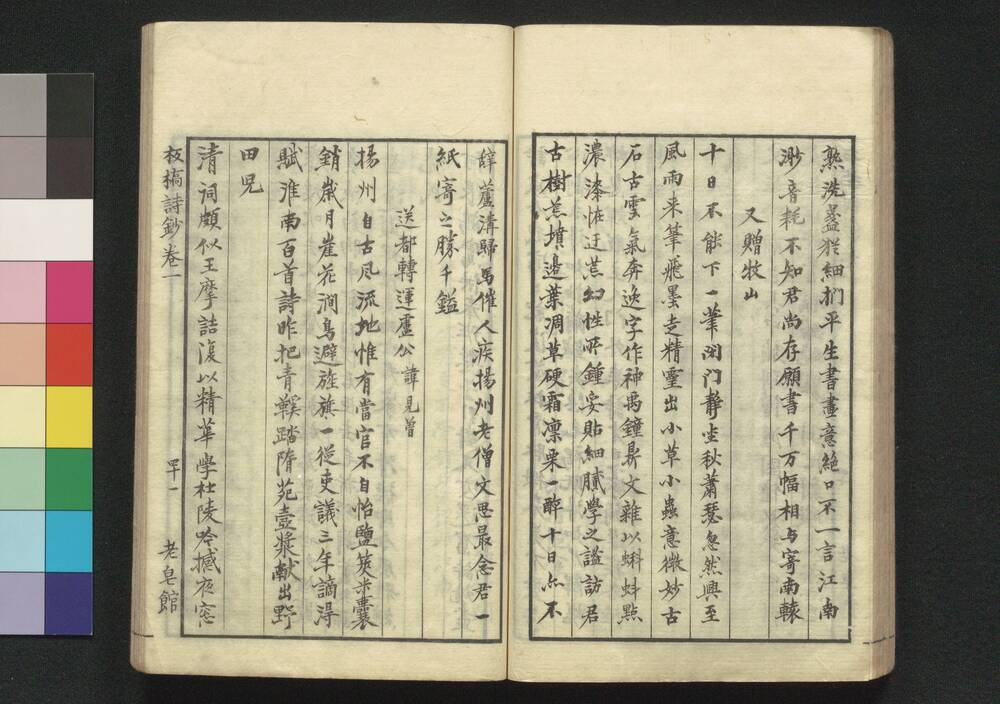 熟洗盞猶細捫平生書畫意絶口不一言江南
渺音耗不知君尚存願書千万幅相与寄南轅
又贈牧山
十日不能下一筆閉门静坐秋蕭瑟忽然興至
風雨来筆飛墨走精靈出小草小蟲意微妙古
石古雲氣奔逸字作神禹鐘鼎文雜以蝌蚪點
濃漆怪迂荒幻性所鍾妥貼細膩學之謐訪君
古樹荒墳邊葉凋草硬霜凛栗一醉十日亦不
辭蘆溝歸馬催人疾揚州老僧文思最念君一
紙寄之勝千鎰
送都轉運盧公諱見曾
揚州自古风流地惟有當官不自怡鹽筴米囊
銷歳月崖花澗鳥避旌旗一從吏議三年謫得
賦淮南百首詩昨把青鞵踏隋苑壺漿献出野
田児
清词頗似王摩詰復以精華學杜陵吟撼夜窓
板橋詩鈔卷一
四十一
老皂館